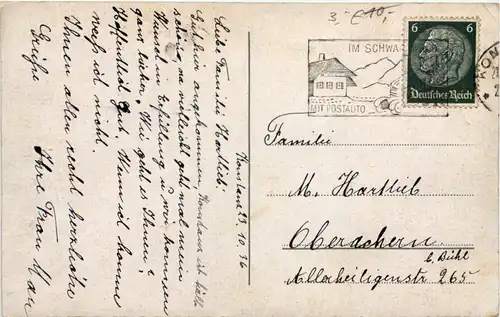 3,- € 10,-
IM SCHWA
MIT POSTAUTO
6 6
Deutsches Reich
KON
Konstanz 23.10.36
Liebe Familie Hartlieb!
Gut hier angekommen, Konstanz ist
schön, vielleicht geht mal mein
Wunsch in Erfüllung u. wir kommen
ganz hierher. Wie geht es Ihnen?
Hoffentlich gut. Wann ich komme
weiß ich nicht.
Ihnen allen recht herzliche
Grüße Ihre Frau
Familie
M. Hartlieb
Oberachern
b. Bühl
Allerheiligenstr 265